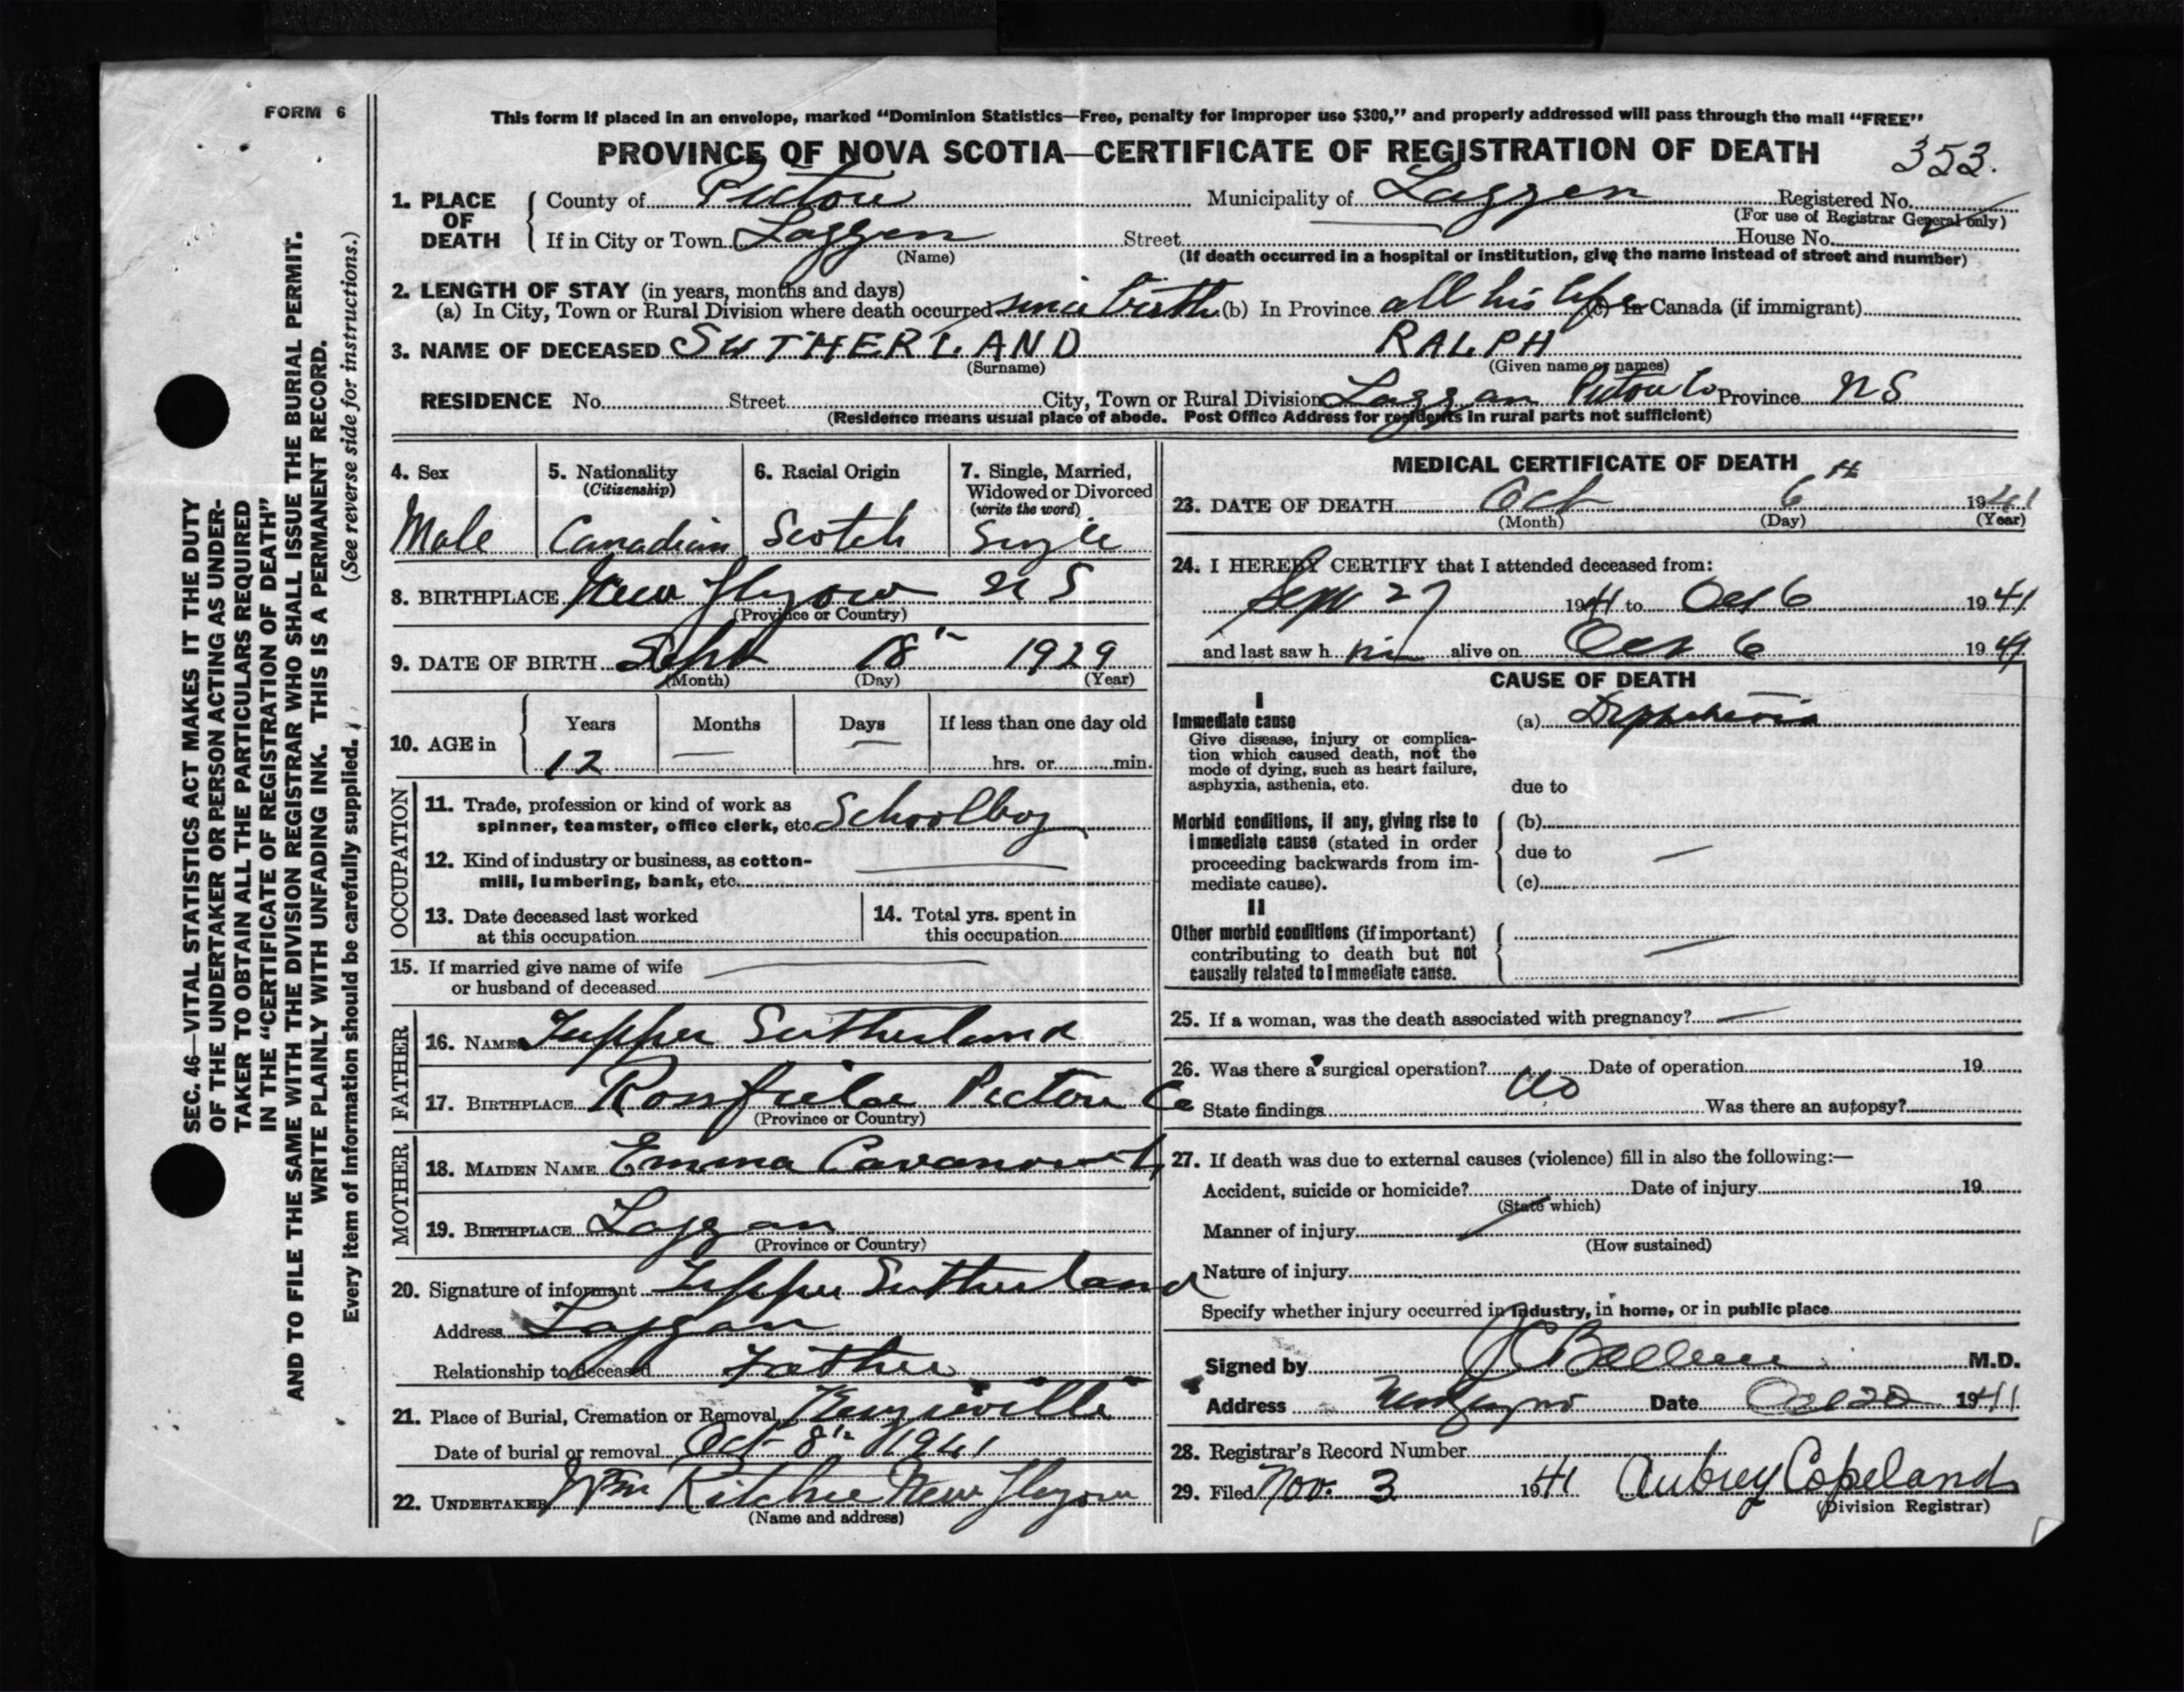 FORM 6
This form if placed in an envelope, marked "Dominion Statistics—Free, penalty for improper use $300," and properly addressed will pass through the mail "FREE"
PROVINCE OF NOVA SCOTIA—CERTIFICATE OF REGISTRATION OF DEATH 353.
1. PLACE OF DEATH
County of Pictou Municipality of Laggen Registered No.
(For use of Registrar General only)
If in City or Town Laggen Street House No.
(Name) (If death occurred in a hospital or institution, give the name instead of street and number)
2. LENGTH OF STAY (in years, months and days)
(a) In City, Town or Rural Division where death occurred since birth (b) In Province all his life (c) In Canada (if immigrant)
3. NAME OF DECEASED SUTHERLAND RALPH
(Surname) (Given name or names)
RESIDENCE No. Street City, Town or Rural Division Laggan Pictou Co Province NS
(Residence means usual place of abode. Post Office Address for residents in rural parts not sufficient)
4. Sex
Male
5. Nationality
(Citizenship)
Canadian
6. Racial Origin
Scotch
7. Single, Married,
Widowed or Divorced
(write the word)
Single
8. BIRTHPLACE New Glasgow N S
(Province or Country)
9. DATE OF BIRTH Sept 18th 1929
(Month) (Day) (Year)
10. AGE in
Years Months Days If less than one day old
12 — — hrs. or min.
OCCUPATION
11. Trade, profession or kind of work as
spinner, teamster, office clerk, etc. Schoolboy
12. Kind of industry or business, as cotton-
mill, lumbering, bank, etc.
13. Date deceased last worked
at this occupation
14. Total yrs. spent in
this occupation
15. If married give name of wife
or husband of deceased
FATHER
16. NAME Tupper Sutherland
17. BIRTHPLACE Rossfield Pictou Co
(Province or Country)
MOTHER
18. MAIDEN NAME Emma
19. BIRTHPLACE Laggan
(Province or Country)
20. Signature of informant Tupper Sutherland
Address Laggan
Relationship to deceased Father
21. Place of Burial, Cremation or Removal Kenzieville
Date of burial or removal Oct 8th 1941
22. UNDERTAKER Wm Ritchie New Glasgow
(Name and address)
MEDICAL CERTIFICATE OF DEATH
23. DATE OF DEATH Oct 6th 1941
(Month) (Day) (Year)
24. I HEREBY CERTIFY that I attended deceased from:
Sept 27 1941 to Oct 6 1941
and last saw h im alive on Oct 6 1941
CAUSE OF DEATH
I
Immediate cause
Give disease, injury or complica-
tion which caused death, not the
mode of dying, such as heart failure,
asphyxia, asthenia, etc.
(a) Diphtheria
due to
Morbid conditions, if any, giving rise to
immediate cause (stated in order
proceeding backwards from im-
mediate cause).
(b)
due to —
(c)
II
Other morbid conditions (if important)
contributing to death but not
causally related to immediate cause.
—
25. If a woman, was the death associated with pregnancy? —
26. Was there a surgical operation? No Date of operation 19
State findings Was there an autopsy?
27. If death was due to external causes (violence) fill in also the following:—
Accident, suicide or homicide? Date of injury 19
(State which)
Manner of injury
(How sustained)
Nature of injury
Specify whether injury occurred in industry, in home, or in public place
Signed by M.D.
Address New Glasgow Date Oct 20 1941
28. Registrar's Record Number
29. Filed Nov. 3 1941 Aubrey Copeland
(Division Registrar)
SEC. 46—VITAL STATISTICS ACT MAKES IT THE DUTY
OF THE UNDERTAKER OR PERSON ACTING AS UNDER-
TAKER TO OBTAIN ALL THE PARTICULARS REQUIRED
IN THE "CERTIFICATE OF REGISTRATION OF DEATH"
AND TO FILE THE SAME WITH THE DIVISION REGISTRAR WHO SHALL ISSUE THE BURIAL PERMIT.
WRITE PLAINLY WITH UNFADING INK. THIS IS A PERMANENT RECORD.
Every item of information should be carefully supplied. (See reverse side for instructions.)